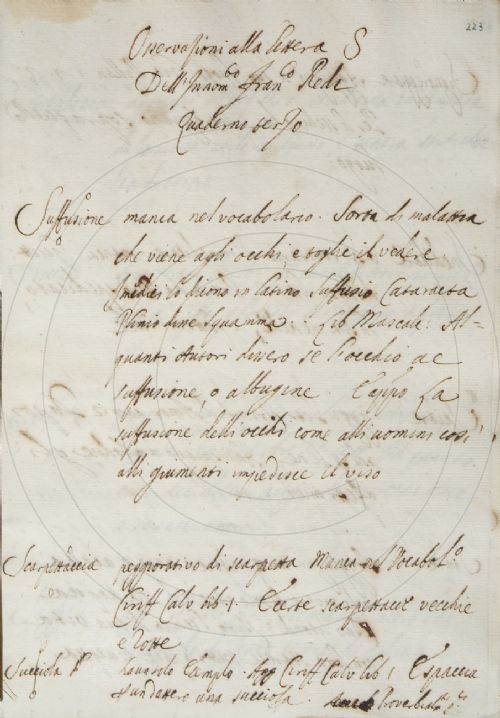 223
Osservazioni alla lettera S
Dell'Innom.to Fran.co Redi
Quaderno terzo
Suffusione manca nel vocabolario. Sorta di malattia
che viene agli occhi, e toglie il vedere
i medici lo dicono in latino Suffusio Cataracta
Plinio disse Squamma. Lib Mascalc: Al-
quanti Autori dicero se l'occhio àe
suffusione, o albugine. E appo La
suffusione delli occhi come alli uomini così
alli giumenti impedisce il viso
Scarpettaccia peggiorativo di scarpetta Manca nel Vocabol.o
Ciriff Calv lib 1. E certe scarpettacce vecchie
e rotte
Succiola Ciriff Calv lib 1 E spaccia
una succiola. Proverbial.